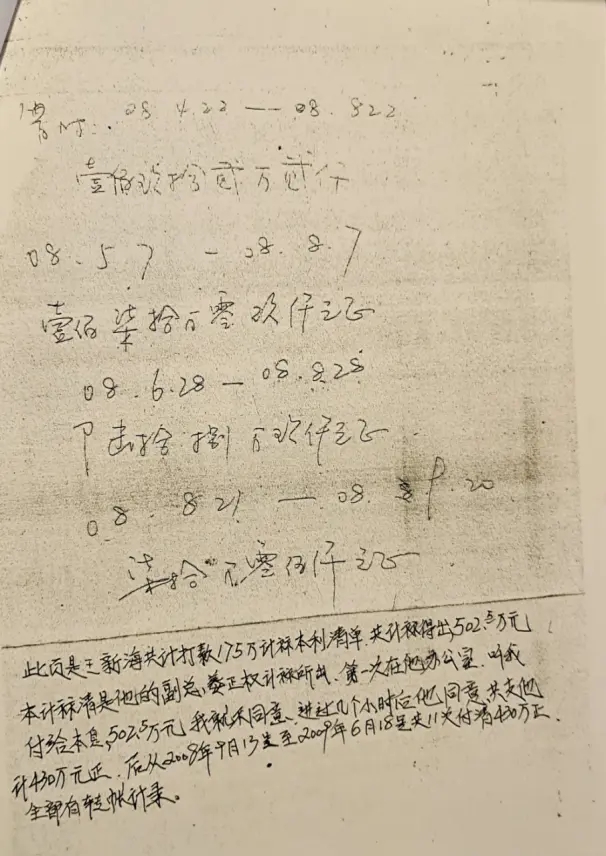 08.4.22 — 08.822
壹佰玖拾贰万贰仟
08.5.7 — 08.8.7
壹佰柒拾万零玖仟元正
08.6.28 — 08.828
拾捌万玖仟元正
08.821 — 08.9.20
柒拾万零伍仟元正
此页是王新海共计打款175万计算本利清单.共计算得出,502.5万元
本计算清是他的副总,娄正权计算所出.第一次在他办公室.叫我
付给本息,502.5万元 我就不同意、进过几个小时后他同意 共支他
计430万元正.后从2008年9月13号至2009年6月18号共11次付清430万正.
全部有转帐计录。